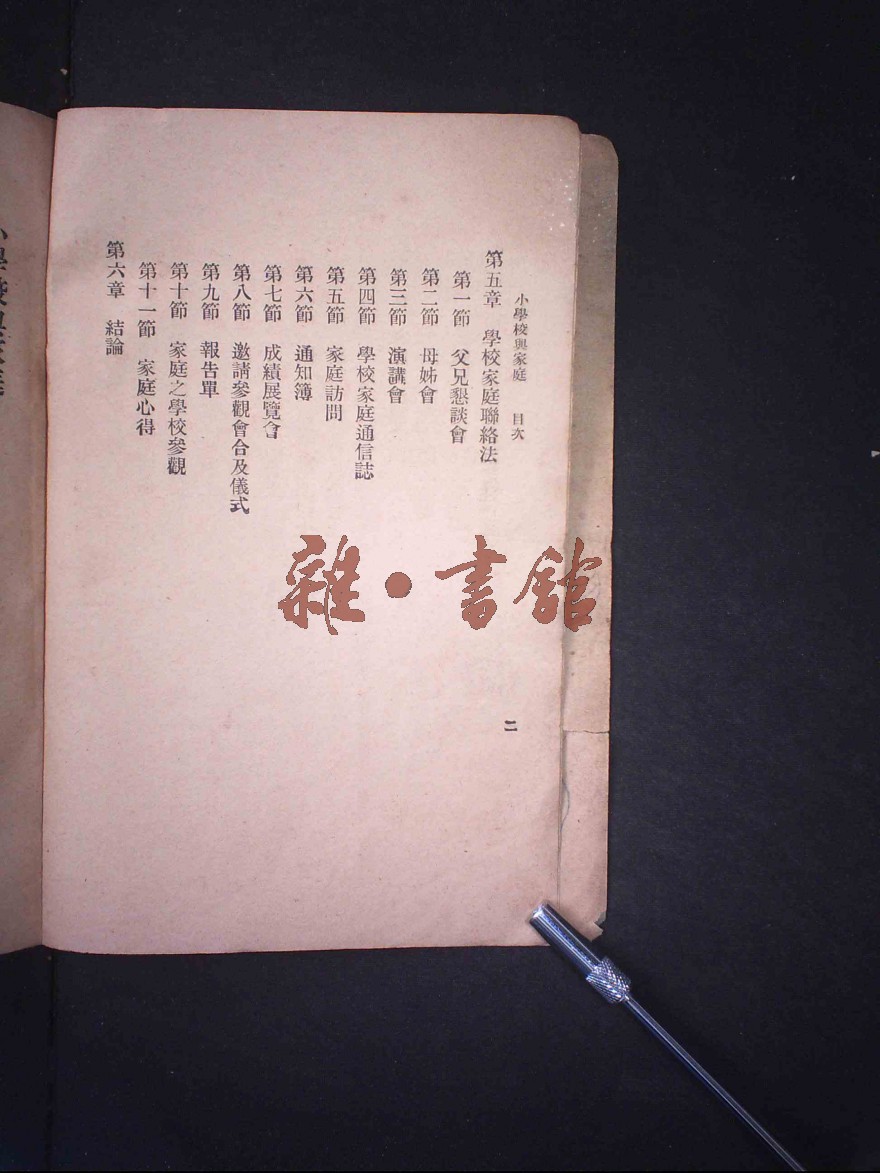 小學校與家庭　目次
第五章　學校家庭聯絡法
第一節　父兄懇談會
第二節　母姊會
第三節　演講會
第四節　學校家庭通信誌
第五節　家庭訪問
第六節　通知簿
第七節　成績展覽會
第八節　邀請參觀會合及儀式
第九節　報告單
第十節　家庭之學校參觀
第十一節　家庭心得
第六章　結論
二
雜·書館